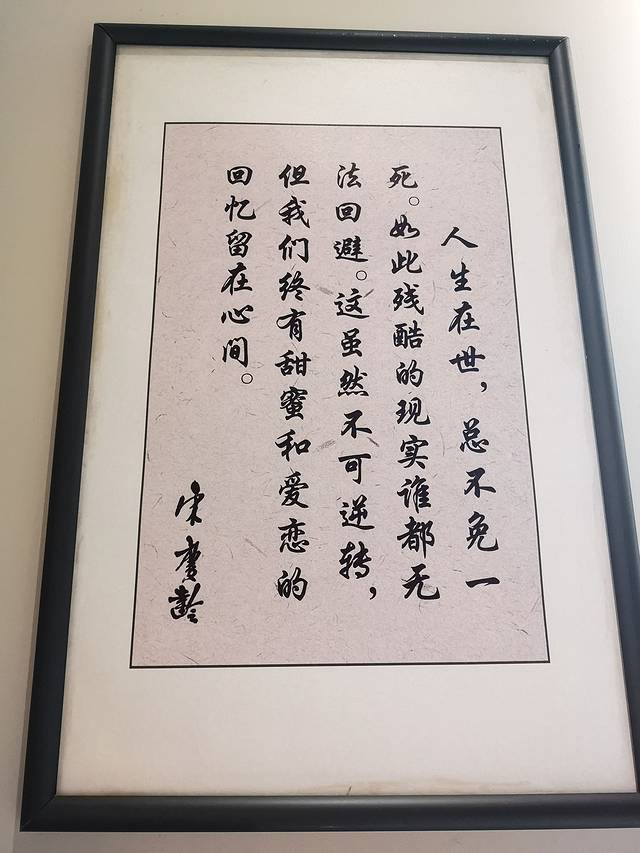 人生在世，总不免一
死。如此残酷的现实谁都无
法回避。这虽然不可逆转，
但我们终有甜蜜和爱恋的
回忆留在心间。
宋庆龄